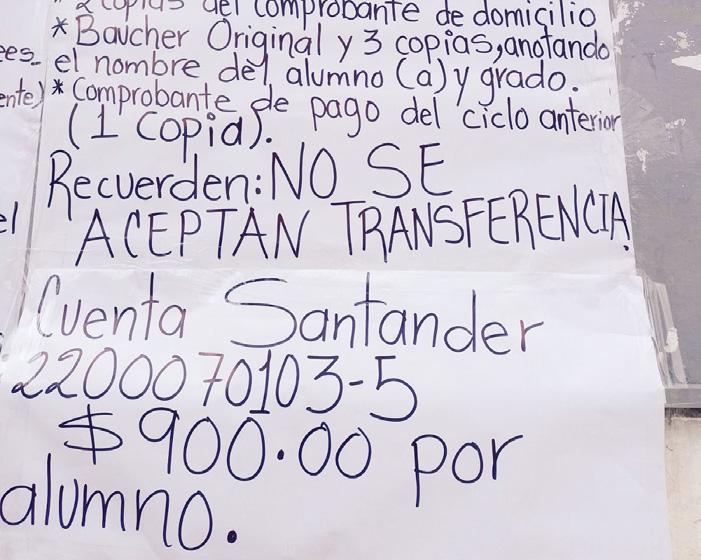 * 2 copias del comprobante de domicilio
* Baucher Original y 3 copias, anotando
el nombre del alumno (a) y grado.
* Comprobante de pago del ciclo anterior
(1 copia).
Recuerden: NO SE
ACEPTAN TRANSFERENCIA.
Cuenta Santander
2200070103-5
$900.00 por
alumno.
ees_
ente)
el